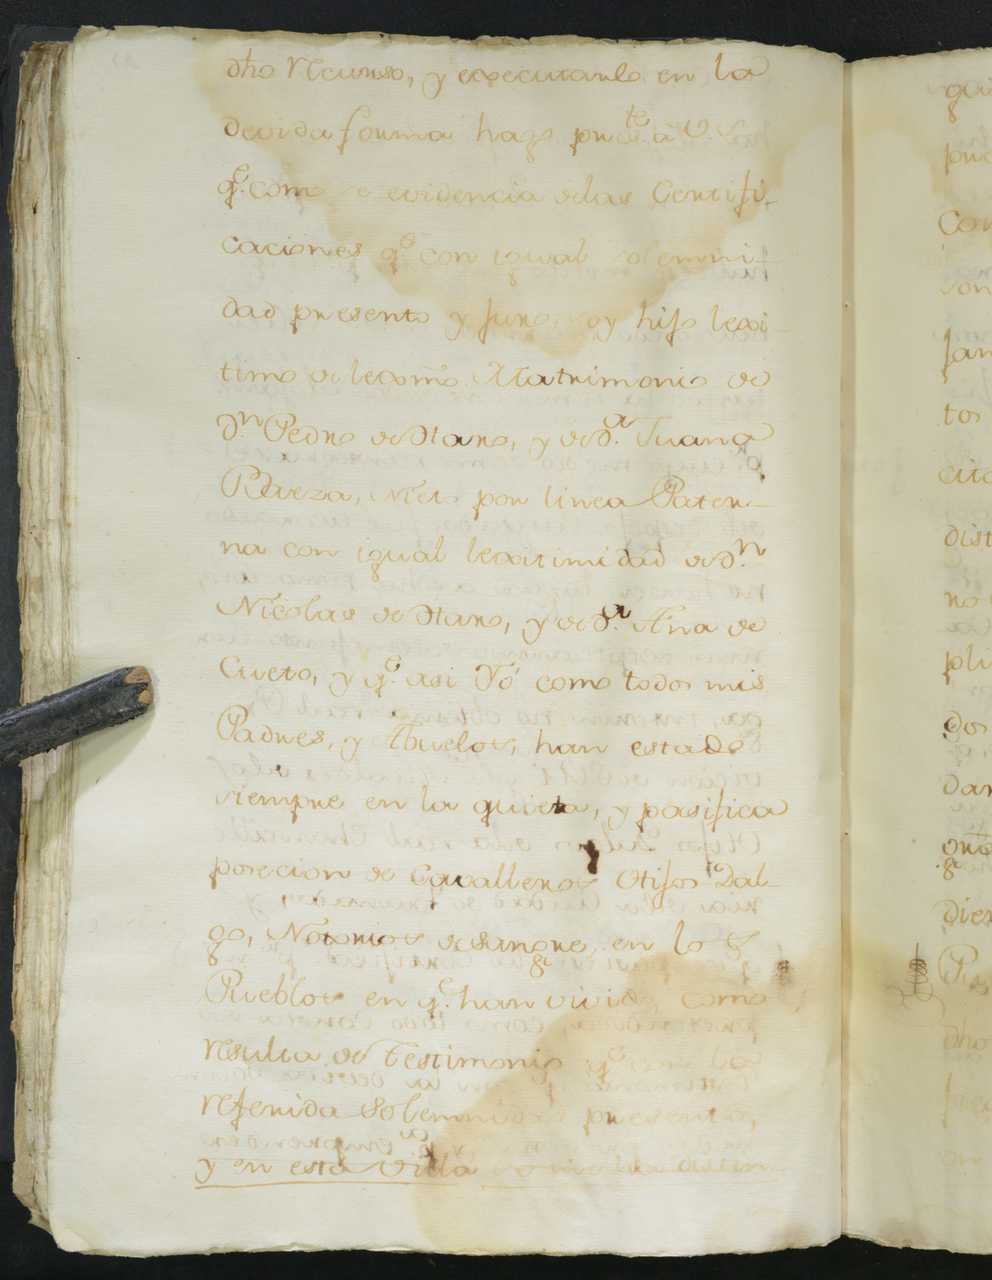 dho Recurso, y executarlo en la
devida forma hago preste. a V. S.
qe. como se evidencia delas Certifi-
caciones qe. con igual solemni-
dad presento y juro, soy hijo lexi-
timo de lexmo. Matrimonio de
Dn. Pedro de Haro, y de Da. Juana
Pedreza, Nieto por linea Pater-
na con igual lexitimidad de Dn.
Nicolas de Haro, y de Da. Ana de
Cueto, y qe. asi Yó como todos mis
Padres, y Abuelos, han estado
siempre en la quieta, y pasifica
posecion de Cavalleros Hijos Dal-
go, Notorios de Sangre en los
Pueblos en qe. han vivido, como
resulta de Testimonio qe. con la
referida Solemnidad presento,
y en esta Villa distin
gui
pre
Con
con
jan
tos
cito
dist
no
pli
Dos
dar
dien